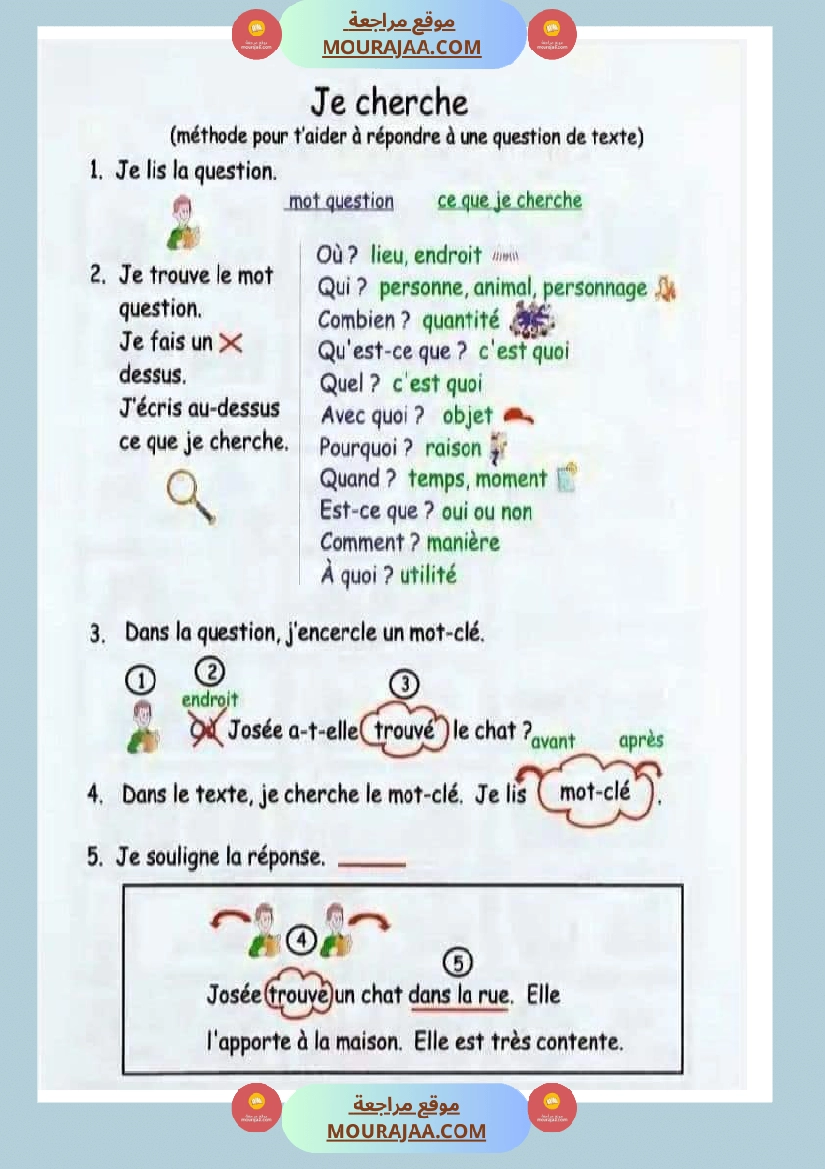 موقع مراجعة
MOURAJAA.COM
Je cherche
(méthode pour t'aider à répondre à une question de texte)
1. Je lis la question.
mot question ce que je cherche
2. Je trouve le mot
question.
Je fais un
dessus.
J'écris au-dessus
ce que je cherche.
Où ? lieu, endroit
Qui ? personne, animal, personnage
Combien ? quantité
Qu'est-ce que ? c'est quoi
Quel ? c'est quoi
Avec quoi ? objet
Pourquoi ? raison
Quand ? temps, moment
Est-ce que ? oui ou non
Comment ? manière
À quoi ? utilité
3. Dans la question, j'encercle un mot-clé.
1 2 3
endroit
Où Josée a-t-elle trouvé le chat ?
avant après
4. Dans le texte, je cherche le mot-clé. Je lis mot-clé.
5. Je souligne la réponse.
4
5
Josée trouve un chat dans la rue. Elle
l'apporte à la maison. Elle est très contente.
موقع مراجعة
MOURAJAA.COM